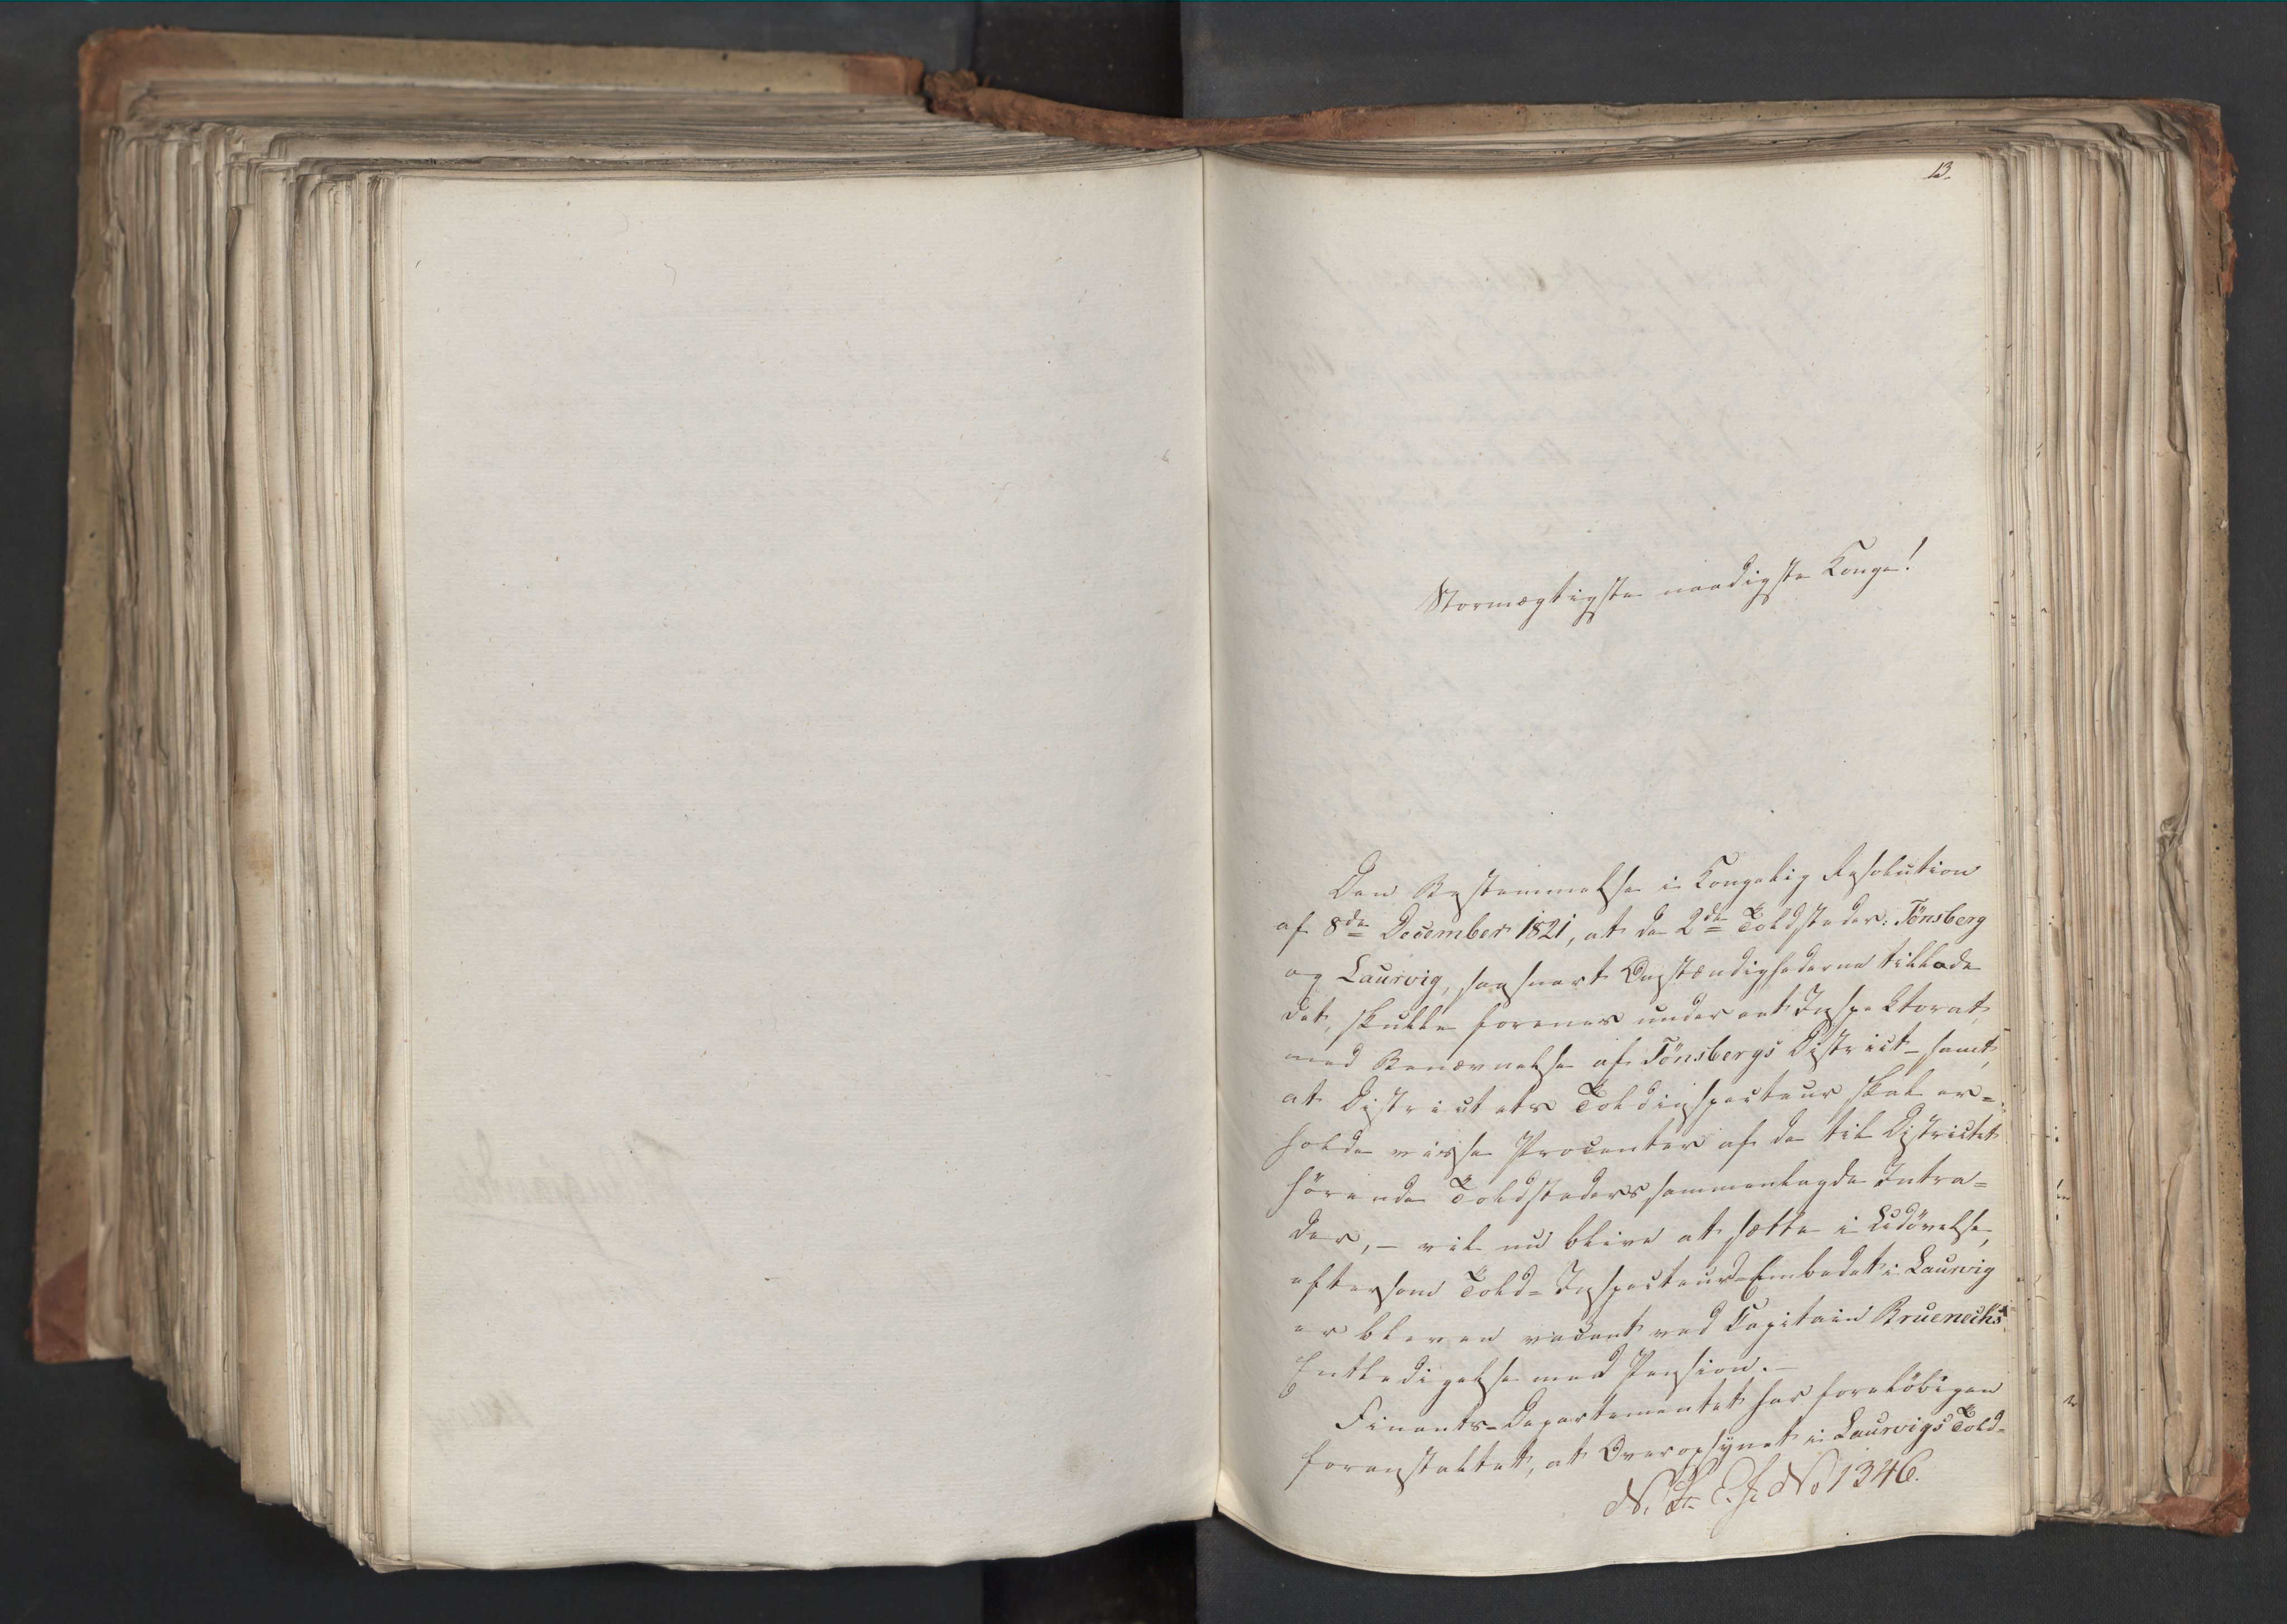 13.
Stormægtigste naadigste Konge!
Den Bestemmelse i Kongelig Resolution
af 8de December 1821, at de 2de Toldsteder: Tönsberg
og Laurvig, saasnart Omstændighederne tillode
det, skulle forenes under eet Inspektorat,
med Benævnelse af Tönsbergs District – samt,
at Districtets Toldinspecteur skal er=
holde visse Procenter af de til Districtet
hörende Toldsteders sammenlagde Intra=
der, – vil nu blive at sætte i Udövelse,
eftersom Told-Inspecteur-Embedet i Laurvig
er bleven vacant ved Capitain Bruenechs
Entledigelse med Pension. –
Finants-Departementet har forelöbigen
foranstaltet, at Overopsynet i Laurvigs Told-
N. No 1346.